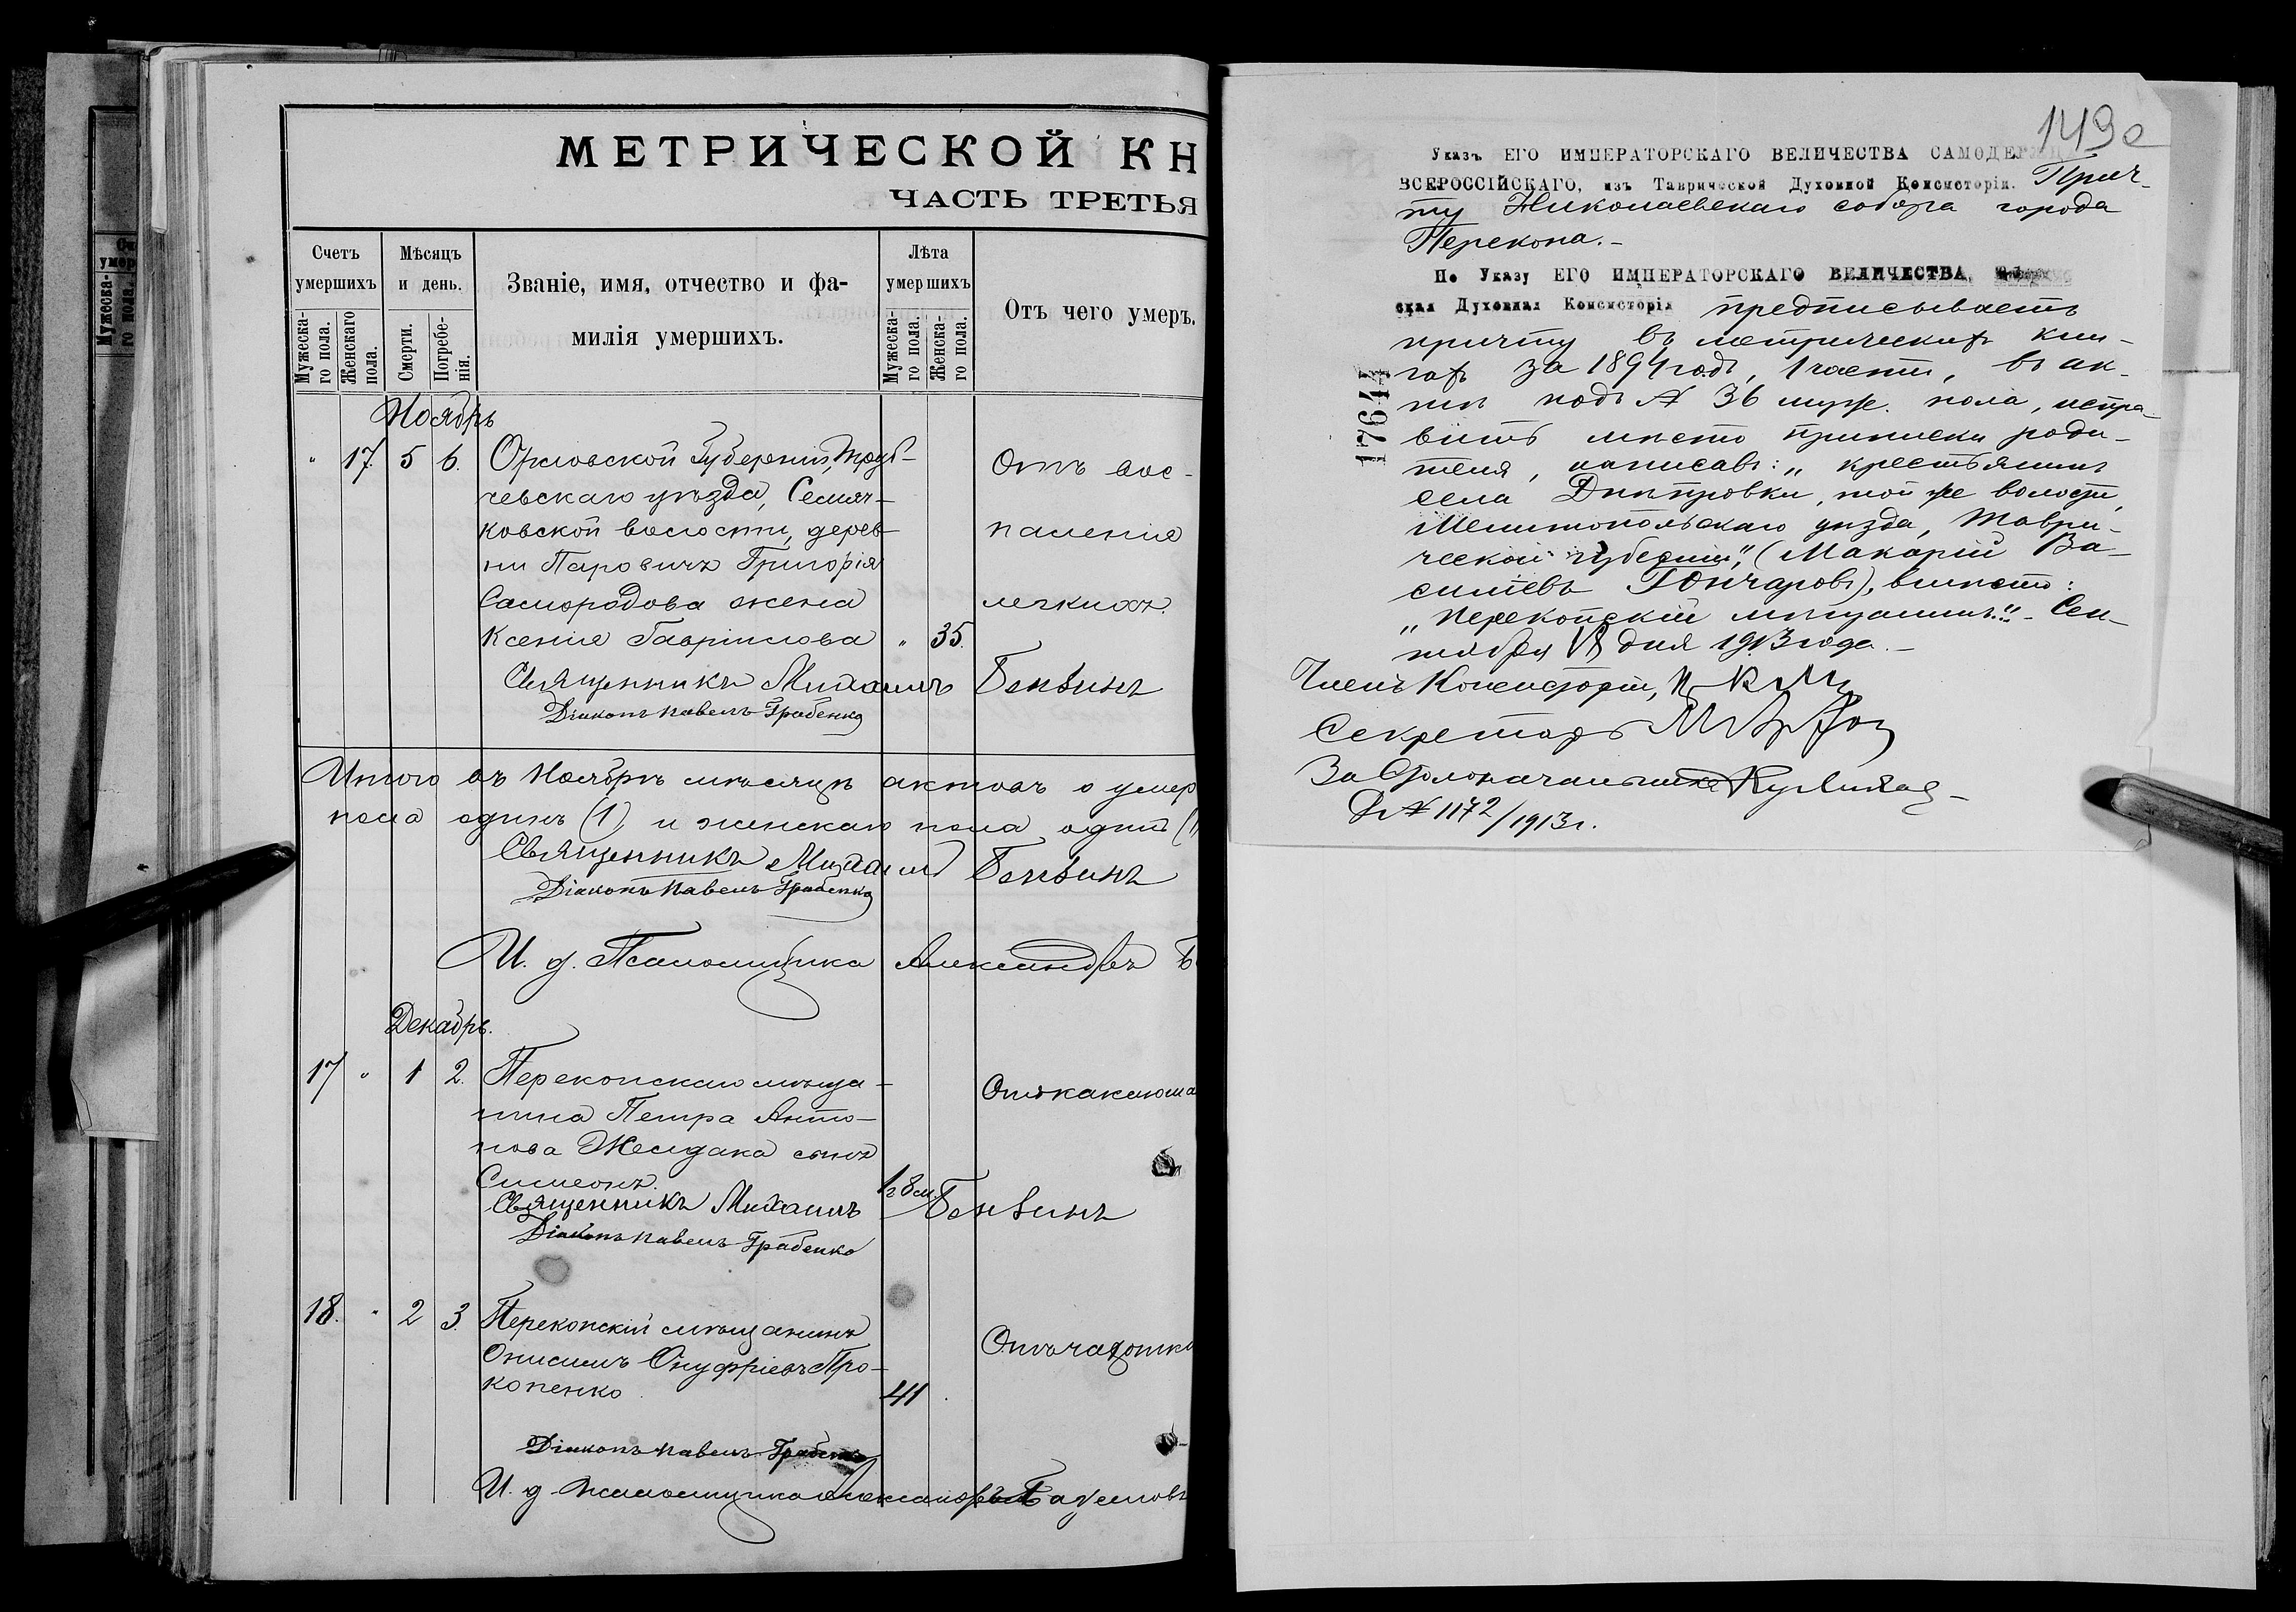 МЕТРИЧЕСКОЙ КН
ЧАСТЬ ТРЕТЬЯ
Счетъ умершихъ
Мужеска-го пола.
Женскаго пола.
Мѣсяцъ и день.
Смерти.
Погребе-нія.
Званіе, имя, отчество и фа-
милія умершихъ.
Лѣта умершихъ
Мужеска-го пола.
Женска-го пола.
Отъ чего умеръ.
Ноябрь
" 17. 5 6. Орловской Губерніи, Труб- Отъ вос-
чевскаго уѣзда, Семяч-
ковской волости, дерев- паленія
ни Паровичъ Григорія
Самородова жена легкихъ.
Ксенія Гавріилова " 35.
Священникъ Михаилъ
Діаконъ Павелъ Грабенко
Итого въ Ноябрѣ мѣсяцѣ актовъ о умер
пола одинъ (1) и женскаго пола одинъ (1
Священникъ Михаилъ
Діаконъ Павелъ Грабенко
И. д. Псаломщика Александръ Б
Декабрь.
17 " 1 2. Перекопскаго мѣща-
нина Петра Анто-
нова Желдака сынъ
Симеонъ. 1г 8 м.
Священникъ Михаилъ
Діаконъ Павелъ Грабенко
18. " 2 3. Перекопскій мѣщанинъ
Онисимъ Онуфріевъ Про- Отъ чахотки
копенко 41
Діаконъ Павелъ Грабенко
И. д. псаломщика Александръ
149е
Указъ ЕГО ИМПЕРАТОРСКАГО ВЕЛИЧЕСТВА САМОДЕРЖЦА
ВСЕРОССІЙСКАГО, изъ Таврической Духовной Консисторіи. Прич-
ту Николаевскаго собора города
Перекопа.-
По Указу ЕГО ИМПЕРАТОРСКАГО ВЕЛИЧЕСТВА,
ская Духовная Консисторія предписываетъ
причту въ метрическихъ кни-
гахъ за 1894 годъ, 1 части, въ ак-
тѣ подъ № 36 муж. пола, испра-
вить мѣсто приписки роди-
теля, написавъ: „крестьянинъ
села Днѣпровки, той же волости,
Мелитопольскаго уѣзда, Таври-
ческой губерніи", (Макарій Ва-
сильевъ Гончаровъ), вмѣсто:
„Перекопскій мѣщанинъ".- Сен-
тября 18 дня 1913 года.-
17644
Членъ Консисторіи,
Секретарь
За Столоначальника
Д. № 1172/1913 г.